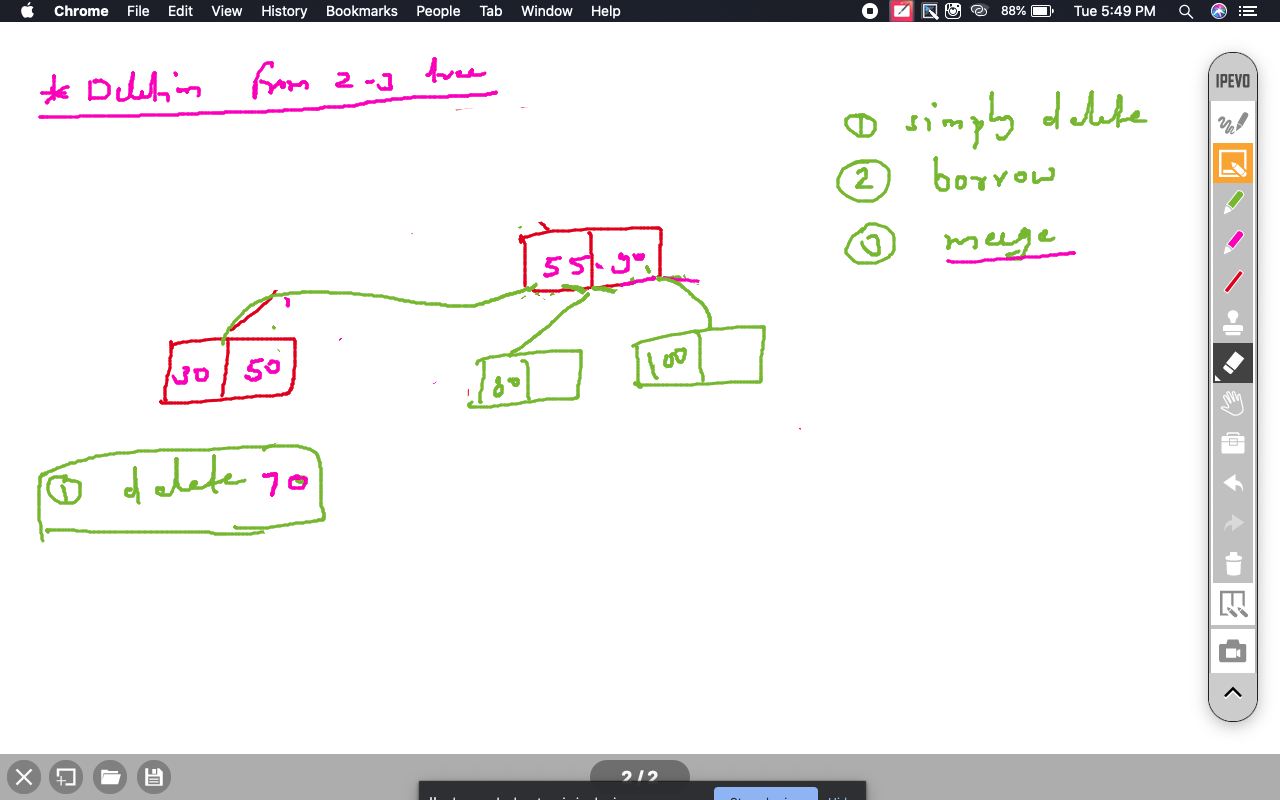 Chrome File Edit View History Bookmarks People Tab Window Help 88% Tue 5:49 PM
IPEVO
* Deletion from 2-3 tree
① simply delete
② borrow
③ merge
55 90
30 50
80
100
① delete 70
2 / 2